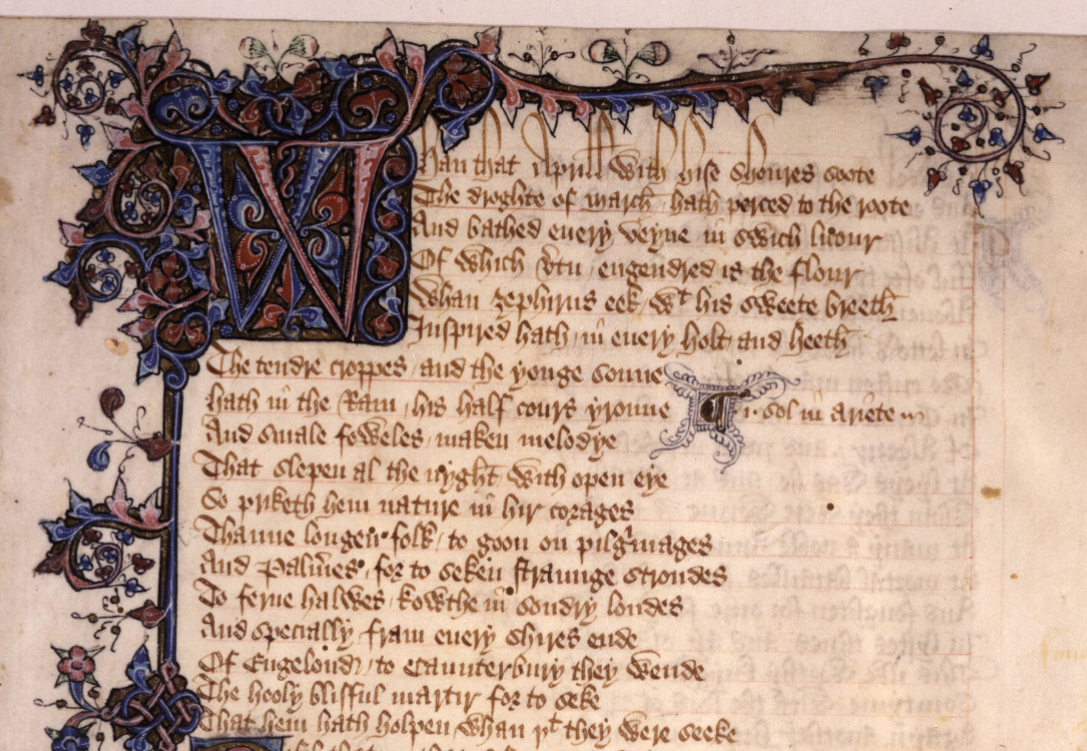 Whan that Aprill with hise shoures soote
The droghte of march / hath perced to the roote
And bathed euery veyne in swich licour
Of which vertu / engendred is the flour
Whan zephirus eek / wt his sweete breeth
Inspired hath / in euery holt and heeth
The tendre croppes / and the yonge sonne
hath in the Ram / his half cours yronne
.i. sol in ariete
And smale foweles / maken melodye
That slepen al the nyght / with open eye
So priketh hem nature in hir corages
Thanne longen folk / to goon on pilgrimages
And Palmeres / for to seken straunge strondes
To ferne halwes / kowthe in sondry londes
And specially / fram euery shires ende
Of Engelond / to Caunterbury they wende
The hooly blisful martir for to seke
That hem hath holpen whan þt they were seeke